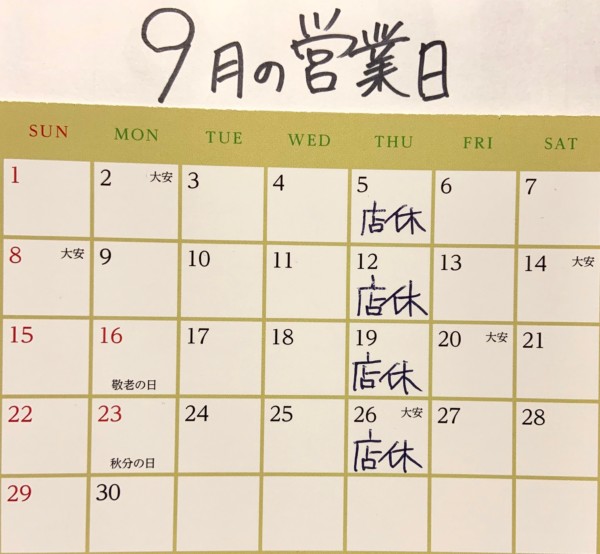 9月の営業日
SUN MON TUE WED THU FRI SAT
1 2 大安 3 4 5 6 7
店休
8 大安 9 10 11 12 13 14 大安
店休
15 16 17 18 19 20 大安 21
敬老の日 店休
22 23 24 25 26 大安 27 28
秋分の日 店休
29 30